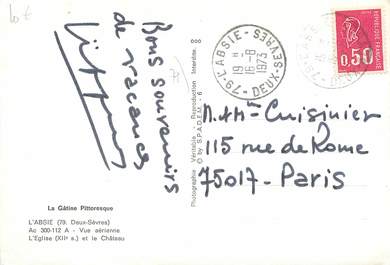 10 €
Bons souvenirs
de vacances
La Gâtine Pittoresque
L'ABSIE (79. Deux-Sèvres)
Ac 300-112 A - Vue aérienne
L'Eglise (XIIᵉ s.) et le Château
Photographie Véritable - Reproduction Interdite.
© by S.P.A.D.E.M. - 6
79-L'ABSIE-DEUX-SEVRES
19 H
16-8
1973
REPUBLIQUE FRANCAISE
0,50
M. & Mme Cuisinier
115 rue de Rome
75017 - Paris